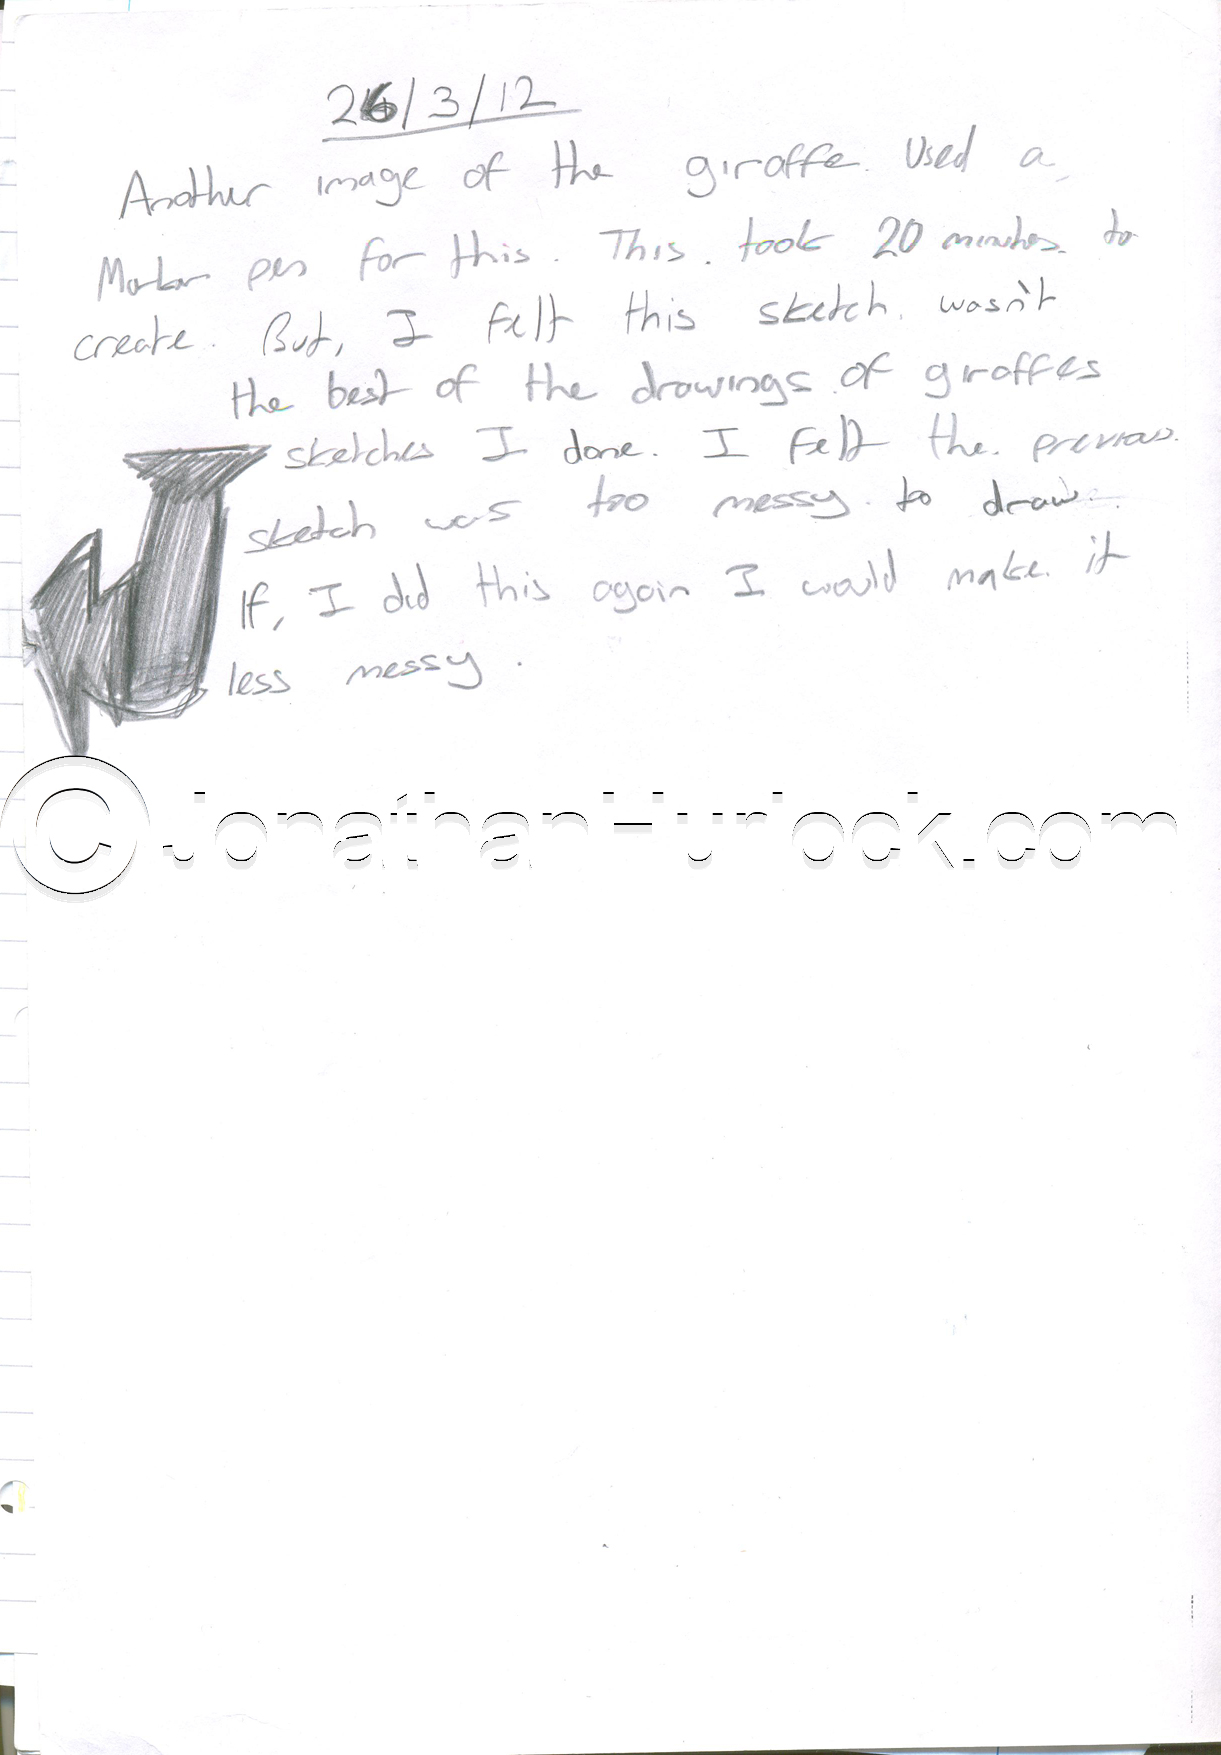 26/3/12
Another image of the giraffe. Used a
Marker pen for this. This. took 20 minutes. to
create. But, I felt this sketch. wasn't
the best of the drawings of giraffes
sketches I done. I felt the. previous.
sketch was too messy. to draw.
If, I did this again I would make. it
less messy.
© JonathanHurlock.com